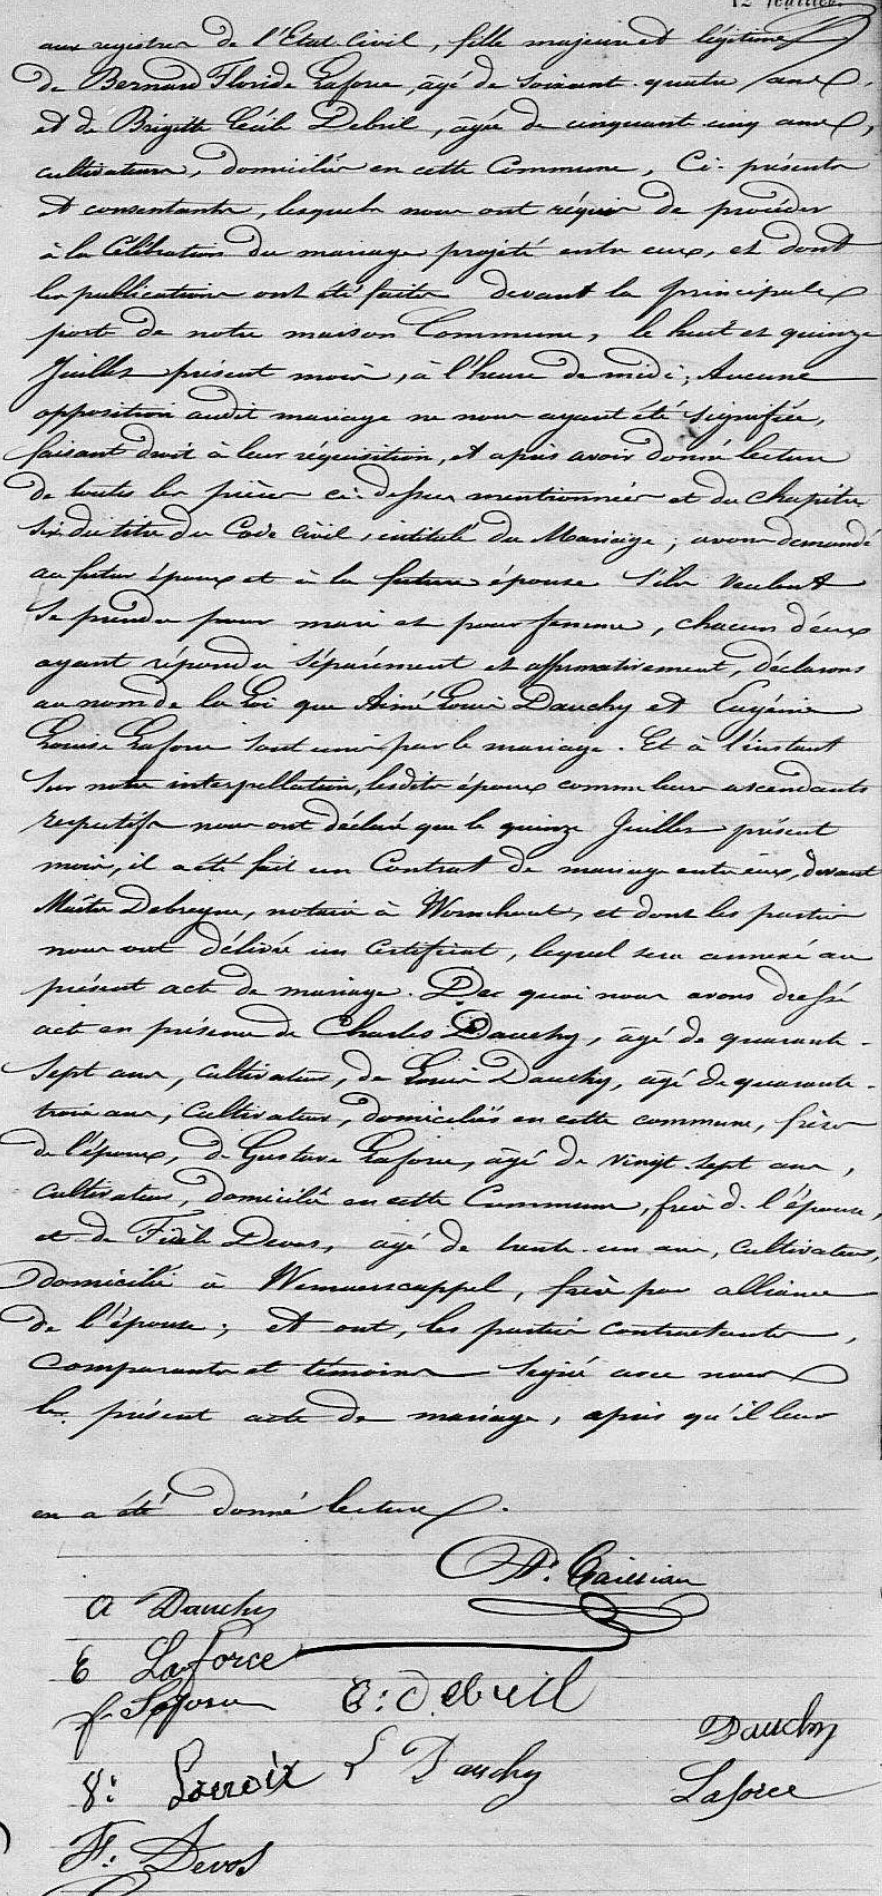 12 feuillet.
aux registres de l'Etat-Civil, fille majeure et légitime
de Bernard Floride Laforce, âgé de soixant-quatre ans,
et de Brigitte Cécile Debril, âgée de cinquante cinq ans,
cultivateurs, domiciliés en cette Commune, Ci-présents
et consentants, lesquels nous ont réquis de procéder
à la Célébration du mariage projeté entre eux, et dont
les publications ont été faites devant la principale
porte de notre maison Commune, le huit et quinze
Juillet présent mois, à l'heure de midi; Aucune
opposition audit mariage ne nous ayant été signifiée,
faisant droit à leur réquisition, et après avoir donné lecture
de toutes les pièces ci-dessus mentionnées et du chapitre
six du titre du Code Civil, intitulé du Mariage; avons demandé
au futur époux et à la future épouse s'ils veulent
se prendre pour mari et pour femme, chacun d'eux
ayant répondu séparément et affirmativement, déclarons
au nom de la Loi que Aimé Louis Dauchy et Eugénie
Louise Laforce sont unis par le mariage. Et à l'instant
sur notre interpellation, lesdits époux comme leurs ascendants
respectifs nous ont déclaré que le quinze Juillet présent
mois, il a été fait un Contrat de mariage entre eux, devant
Maître Debreyne, notaire à Wormhout, et dont les parties
nous ont délivré un Certificat, lequel sera annexé au
présent acte de mariage. De quoi nous avons dressé
acte en présence de Charles Dauchy, âgé de quarante-
sept ans, cultivateur, de Louis Dauchy, âgé de quarante-
trois ans, Cultivateur, domiciliés en cette commune, frères
de l'époux, de Gustave Laforce, âgé de vingt-sept ans,
Cultivateur, domicilié en cette Commune, frère d. l'épouse,
et de Fidèle Devos, âgé de trente-un ans, Cultivateur,
domicilié à Wemaerscappel, frère par alliance
de l'épouse; et ont, les parties contractantes,
comparants et témoins signé avec nous
le présent acte de mariage, après qu'il leur
en a été donné lecture.
A Dauchy
E Laforce
C: Debreil
Dauchy
L Dauchy
Laforce
F: Devos